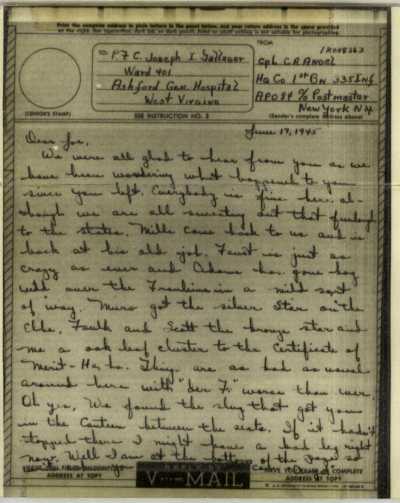 Print the complete address in plain letters in the panel below, and your return address in the space provided
TO PFC. Joseph I Gallager
Ward 401
Ashford Gen. Hospital
West Virginia
FROM
Cpl C R Angel
Hq Co 1st Bn 335 Inf
APO 84 % Postmaster
New York N.Y.
(CENSOR'S STAMP)
SEE INSTRUCTION NO. 2
(Sender's complete address above)
June 17, 1945
Dear Joe,
We were all glad to hear from you as we
have been wondering what happened to you
since you left. Everybody is fine here al-
though we are all sweating out that furlough
to the states. Mills came back to us and is
back at his old job. Faust is just as
crazy as ever and Adams has gone hog
wild over the in a mild sort
of way. got the silver Star on the
Elbe, Faulk and Scott the bronze star and
me a oak leaf cluster to the Certificate of
Merit - Ha, ha. Thing are as bad as usual
around here with "Der F." worse than ever.
Oh yes, We found the slug that got you
in the Canteen between the seats. If it hadn't
stopped there I might have a bad leg right
now. Well I am at the bottom of the page so
HAVE YOU FILLED IN COMPLETE
ADDRESS AT TOP?
REPLY BY
V···-MAIL
HAVE YOU FILLED IN COMPLETE
ADDRESS AT TOP?